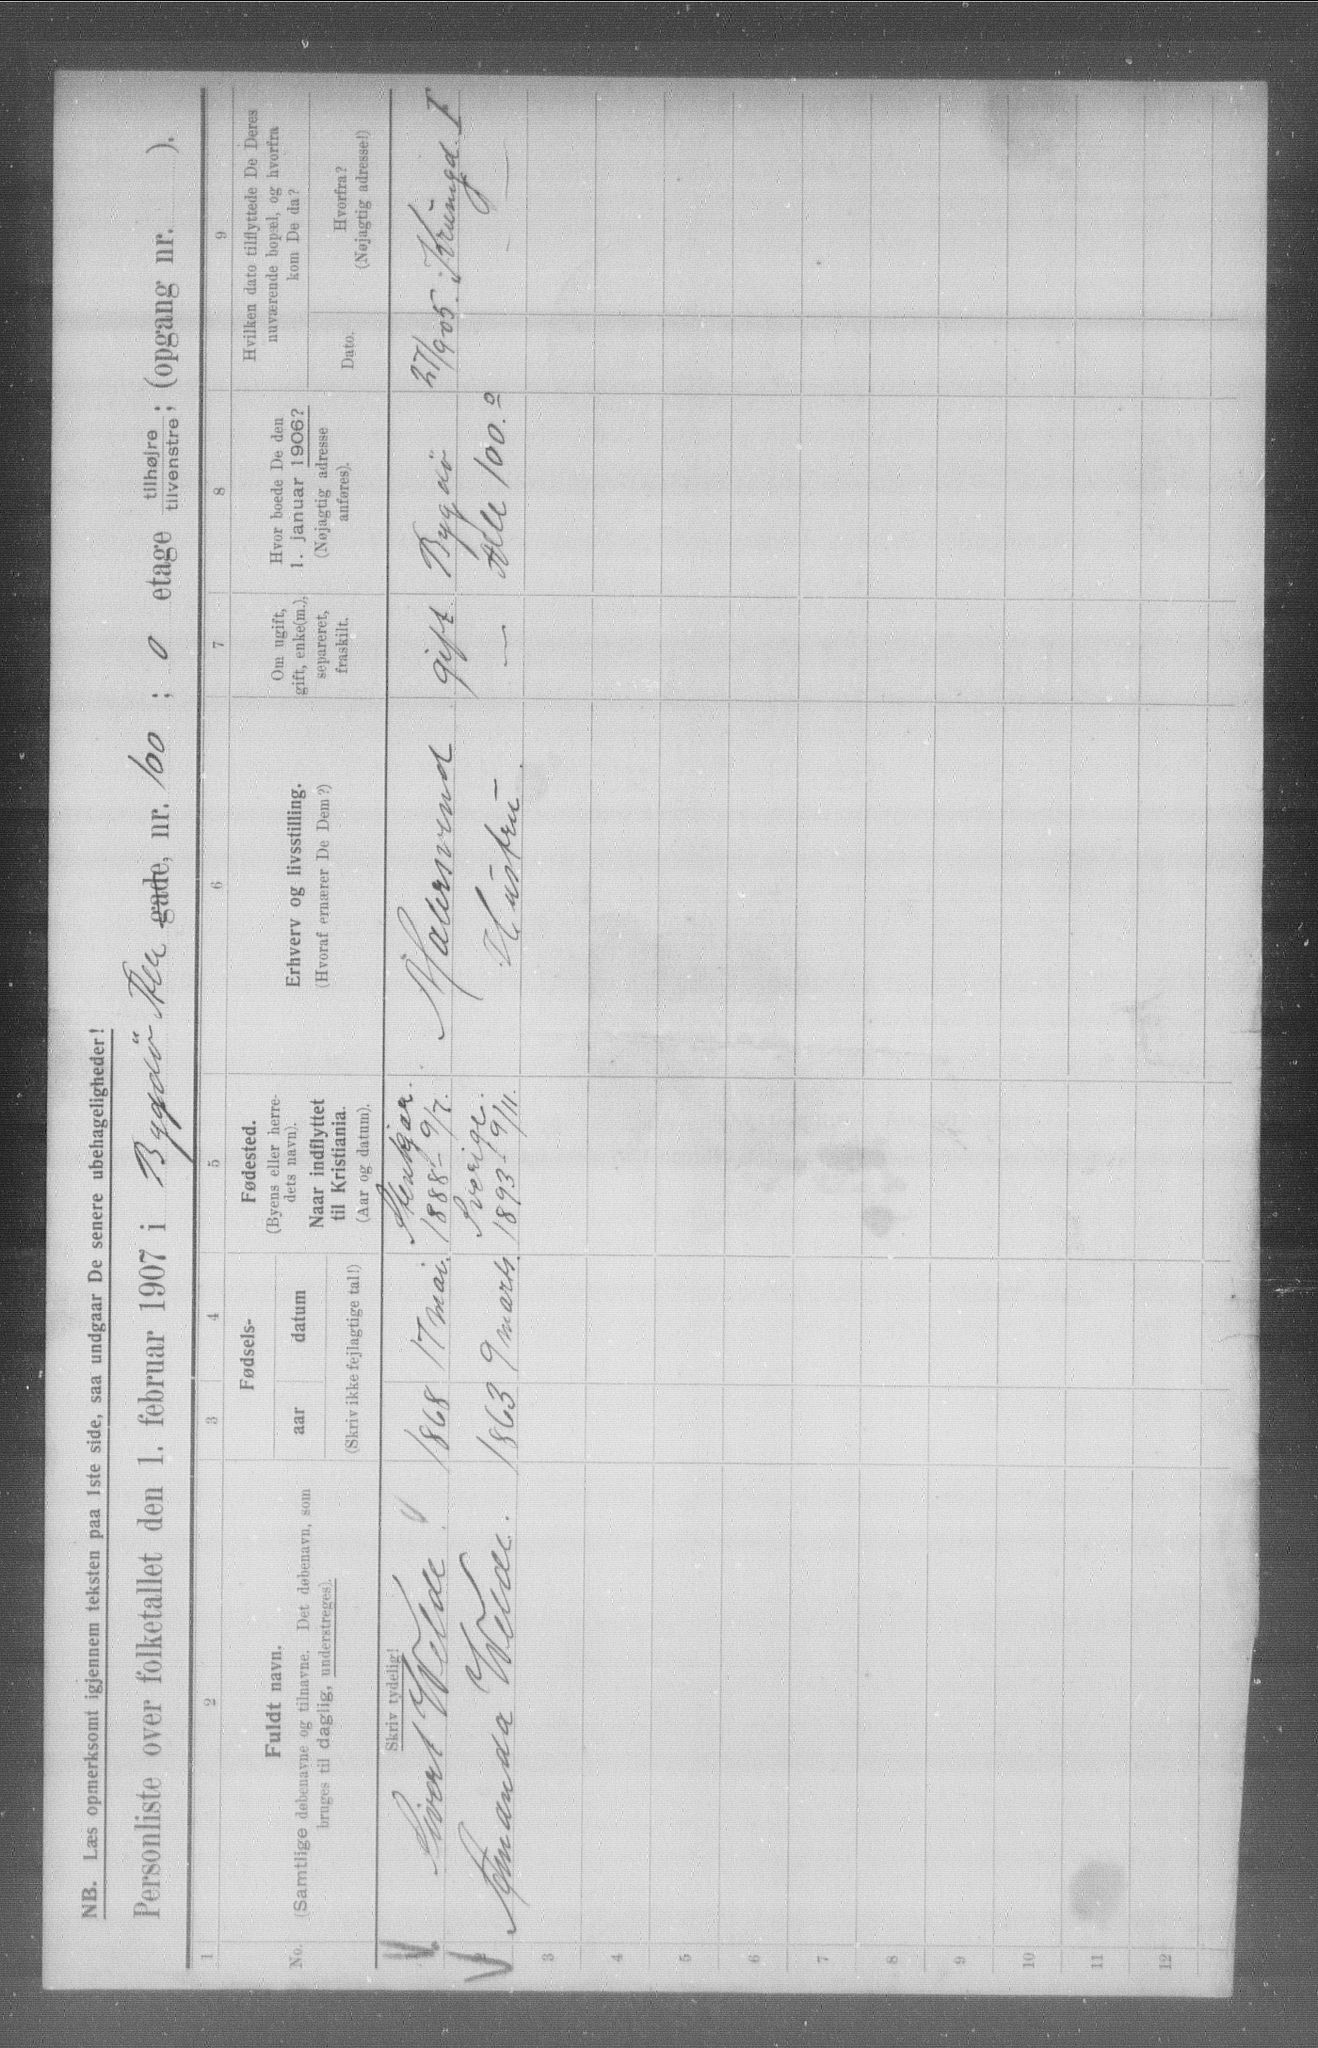 NB. Læs opmerksomt igjennem teksten paa 1ste side, saa undgaar De senere ubehageligheder!
Personliste over folketallet den 1. februar 1907 i Bygdö Alle gade, nr. 100 ; 0 etage tilhøjre tilvenstre; (opgang nr. ).
1 2 3 4 5 6 7 8 9
No.
Fuldt navn.
(Samtlige døbenavne og tilnavne. Det døbenavn, som
bruges til daglig, understreges).
Fødsels-
aar datum
(Skriv ikke fejlagtige tal!)
Fødested.
(Byens eller herre-
dets navn).
Naar indflyttet
til Kristiania.
(Aar og datum).
Erhverv og livsstilling.
(Hvoraf ernærer De Dem?)
Om ugift,
gift, enke(m.),
separeret,
fraskilt.
Hvor boede De den
1. januar 1906?
(Nøjagtig adresse
anføres).
Hvilken dato tilflyttede De Deres
nuværende bopæl, og hvorfra
kom De da?
Dato.
Hvorfra?
(Nøjagtig adresse!)
Skriv tydelig!
1 Sivert Welde 1868 17 mai. Stenkjær. 1888 - 9/7. Malersvend gift Bygdö 27/905.
2 Amanda Welde. 1863 9 marts. Sverige. 1893 - 9/11. Hustru — Alle 100.0 — —
3
4
5
6
7
8
9
10
11
12